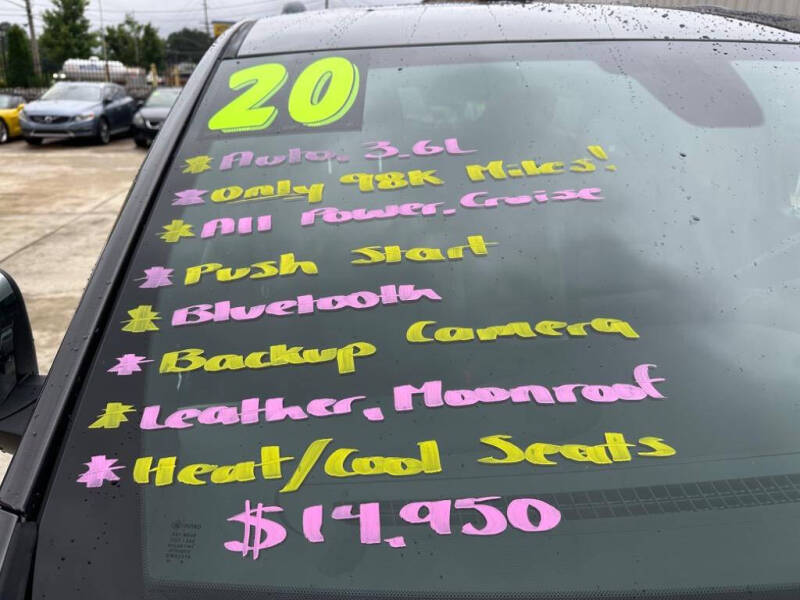 20
* Auto, 3.6L
* Only 98K Miles!
* All Power, Cruise
* Push Start
* Bluetooth
* Backup Camera
* Leather, Moonroof
* Heat/Cool Seats
$14,950